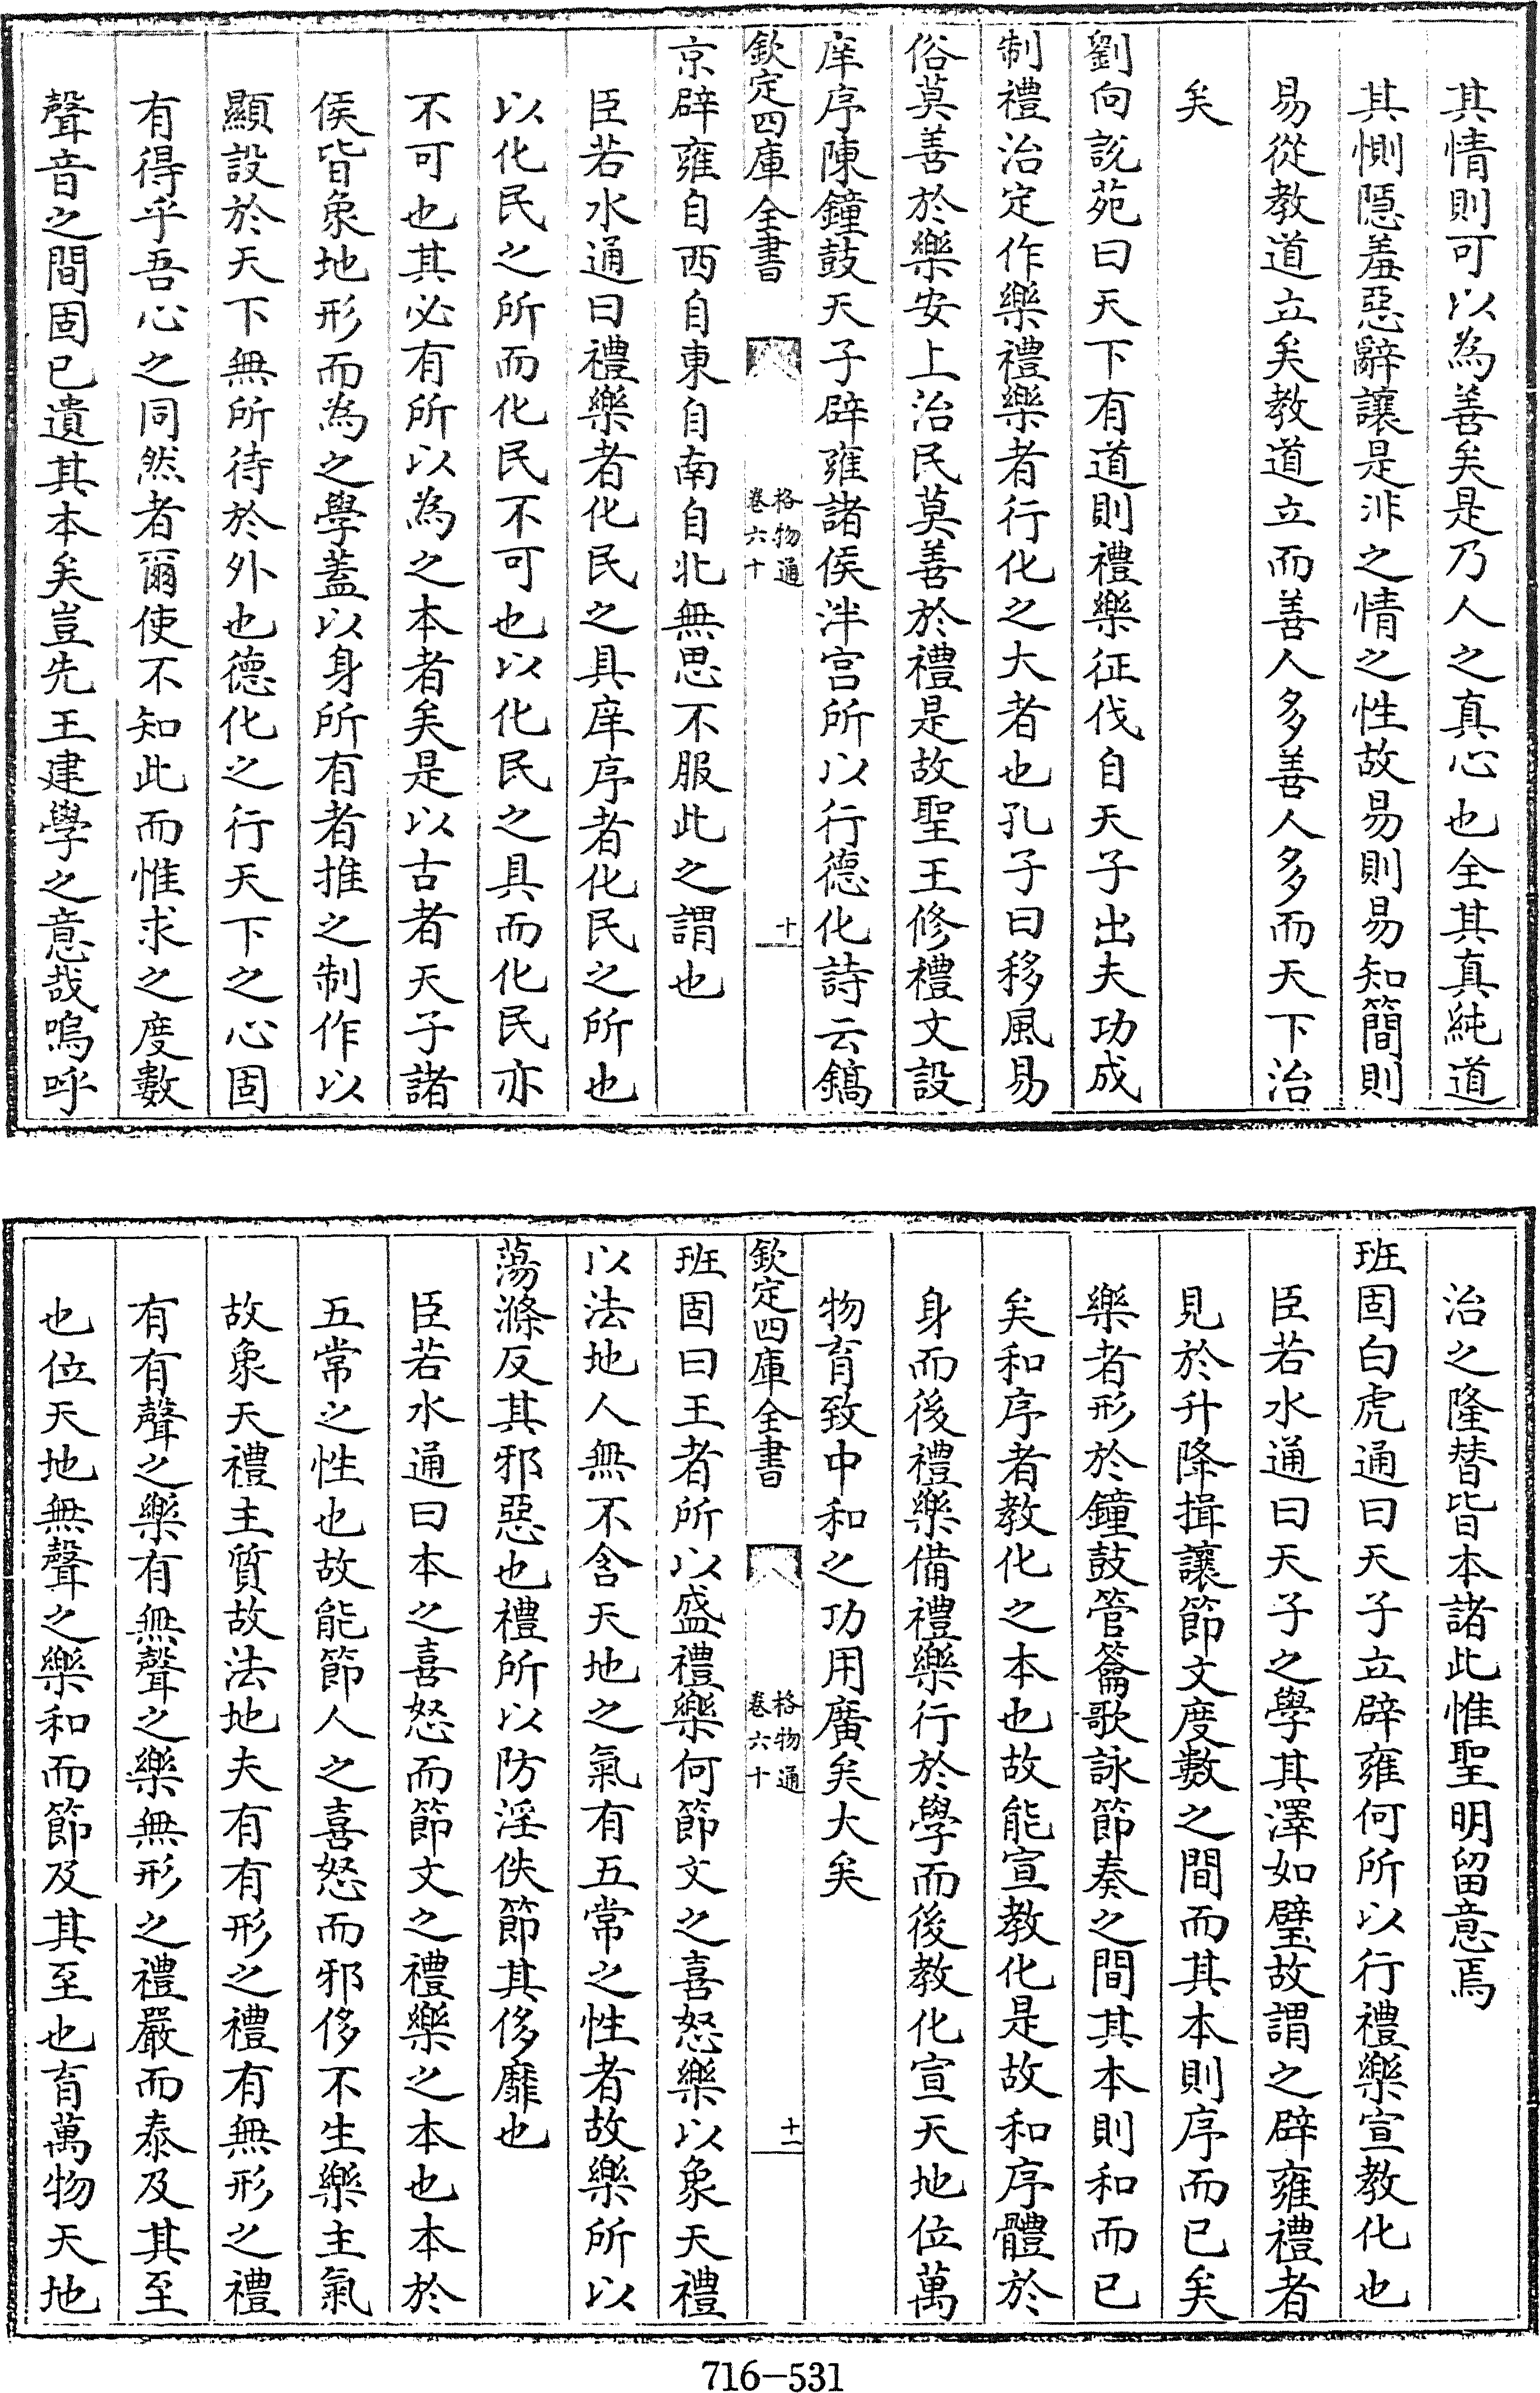 其情則可以為善矣是乃人之真心也全其真純道
其惻隱羞惡辭讓是非之情之性故易則易知簡則
易從教道立矣教道立而善人多善人多而天下治
矣
劉向說苑曰天下有道則禮樂征伐自天子出夫功成
制禮治定作樂禮樂者行化之大者也孔子曰移風易
俗莫善於樂安上治民莫善於禮是故聖王修禮文設
庠序陳鐘鼓天子辟雍諸侯泮宮所以行德化詩云鎬
欽定四庫全書
格物通
卷六十
十
京辟雍自西自東自南自北無思不服此之謂也
臣若水通曰禮樂者化民之具庠序者化民之所也
以化民之所而化民不可也以化民之具而化民亦
不可也其必有所以為之本者矣是以古者天子諸
侯皆象地形而為之學蓋以身所有者推之制作以
顯設於天下無所待於外也德化之行天下之心固
有得乎吾心之同然者爾使不知此而惟求之度數
聲音之間固已遺其本矣豈先王建學之意哉嗚呼
治之隆替皆本諸此惟聖明留意焉
班固白虎通曰天子立辟雍何所以行禮樂宣教化也
臣若水通曰天子之學其澤如璧故謂之辟雍禮者
見於升降揖讓節文度數之間而其本則序而已矣
樂者形於鐘鼓管籥歌詠節奏之間其本則和而已
矣和序者教化之本也故能宣教化是故和序體於
身而後禮樂備禮樂行於學而後教化宣天地位萬
物育致中和之功用廣矣大矣
欽定四庫全書
格物通
卷六十
十一
班固曰王者所以盛禮樂何節文之喜怒樂以象天禮
以法地人無不含天地之氣有五常之性者故樂所以
蕩滌反其邪惡也禮所以防淫佚節其侈靡也
臣若水通曰本之喜怒而節文之禮樂之本也本於
五常之性也故能節人之喜怒而邪侈不生樂主氣
故象天禮主質故法地夫有有形之禮有無形之禮
有有聲之樂有無聲之樂無形之禮嚴而泰及其至
也位天地無聲之樂和而節及其至也育萬物天地
716-531